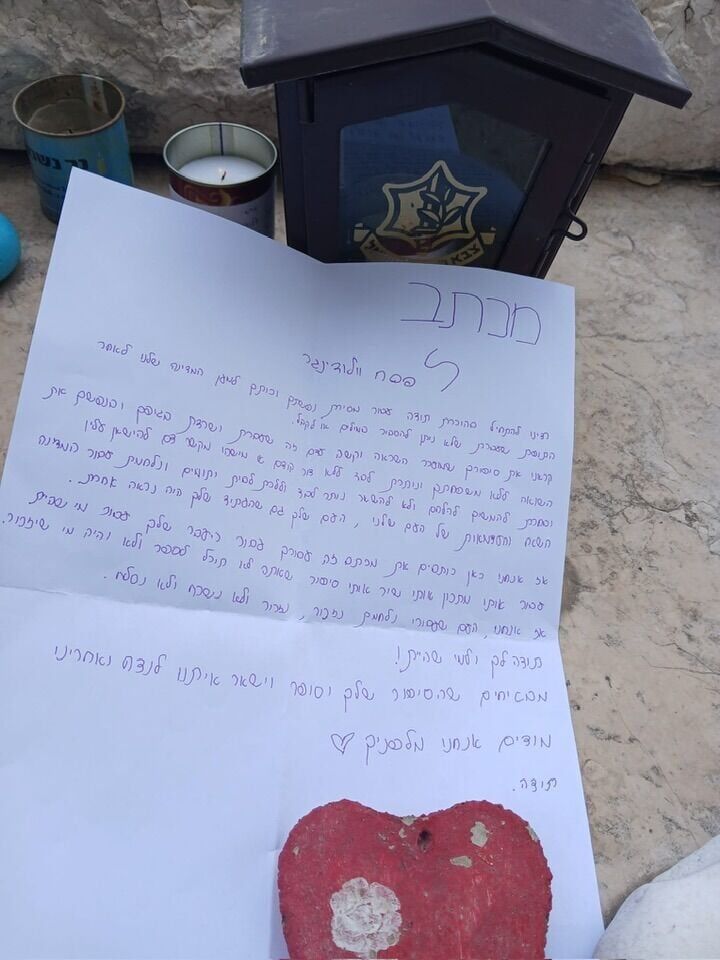 נר נשמ
צבא
מכתב
ל
פסח וולודינגר
רצינו להתחיל בהוכרת תודה עבור מסירת נפשתם וכותם למען המדינה שלנו לאחר
התופת שעברת שלא ניתן להסביר במילים או לקהל.
קראנו את סיפורכם שמעורר השראה וקשה עדם זה שעברת ושרדת בגופם ובנפשם את
השואה ללא משפחתכם ונותרת לבד ללא דור קודם או מישהו מקשר דם להישאן עלין
ובחרת להמשים לרלחם ולא להשאר נותר לבד וללדת לבית יתומים ונלחמת עבור המדינה
השאת ועצמאות של העם שלנו, העם שלך גם שהעתיד שלך היה נראה אחרת.
אז אנחנו כאן כותבים את מכתב זה עבורך עבור העבר שלך עבור מי שהיית
עבור אותו מתכון אותו שיר אותו סיפור שאתה לא תוכל לספר ולא והיה מי שיזכור.
אז אנחנו, העם שעבורו נלחמת נזכור, נזכור ולא נשכח ולא נסלח.
תודה לך ולמי שהיית!
מבטיחים שהסיפור שלך יסופר וישאר איתנו לנצח ואחריו
מודים אנחנו מלפניך ♡
תודה.